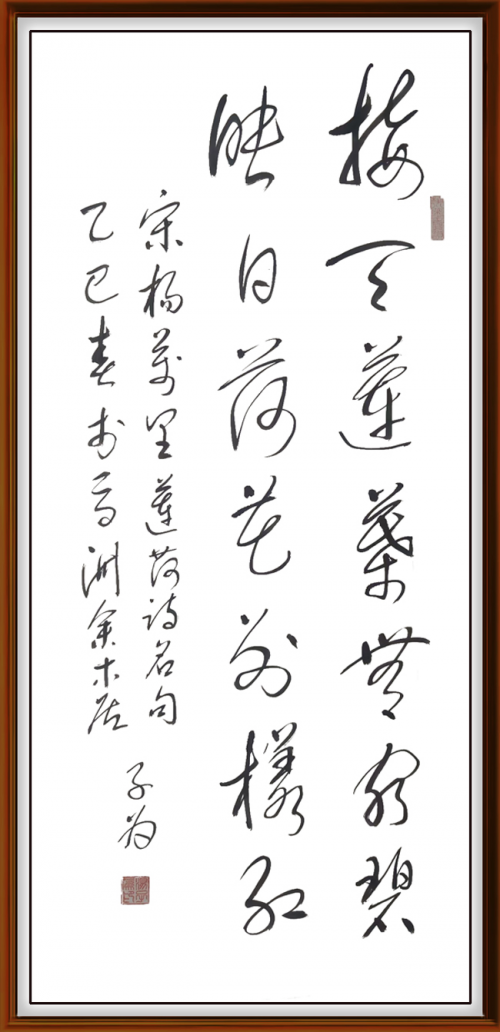 接天蓮葉無窮碧
映日荷花別樣紅
宋楊萬里蓮荷詩名句
乙巳春於洲木居
子为